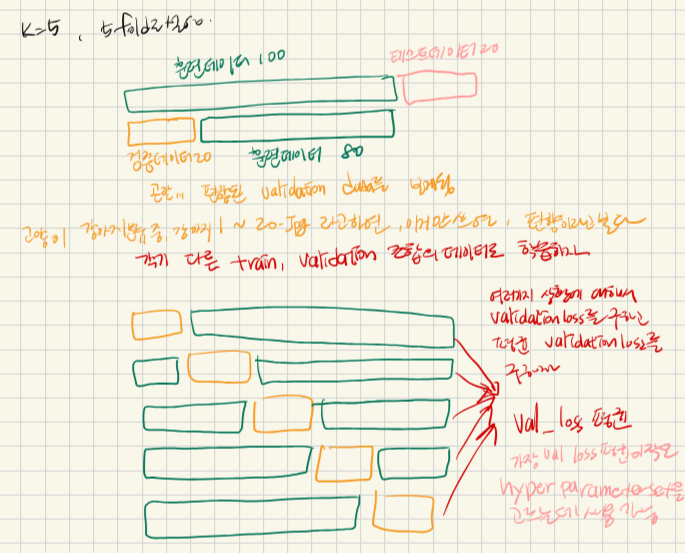 K=5, 5 fold라고 함.
훈련데이터 100
테스트데이터 20
검증데이터 20
훈련데이터 80
편향된 validation data를
고양이 강아지 분류 중, 강아지 1 ~ 20.jpg 라고하면, 이거만 쓰면, 편향이라고 본다
각기 다른 train, validation 조합의 데이터로 학습하자
여러가지 상황에 대해서
validation loss를 구하고
평균 validation loss를
구하자
val_loss 평균
가장 val loss 평균이 작은
hyper parameter set을
고르는데 사용 가능